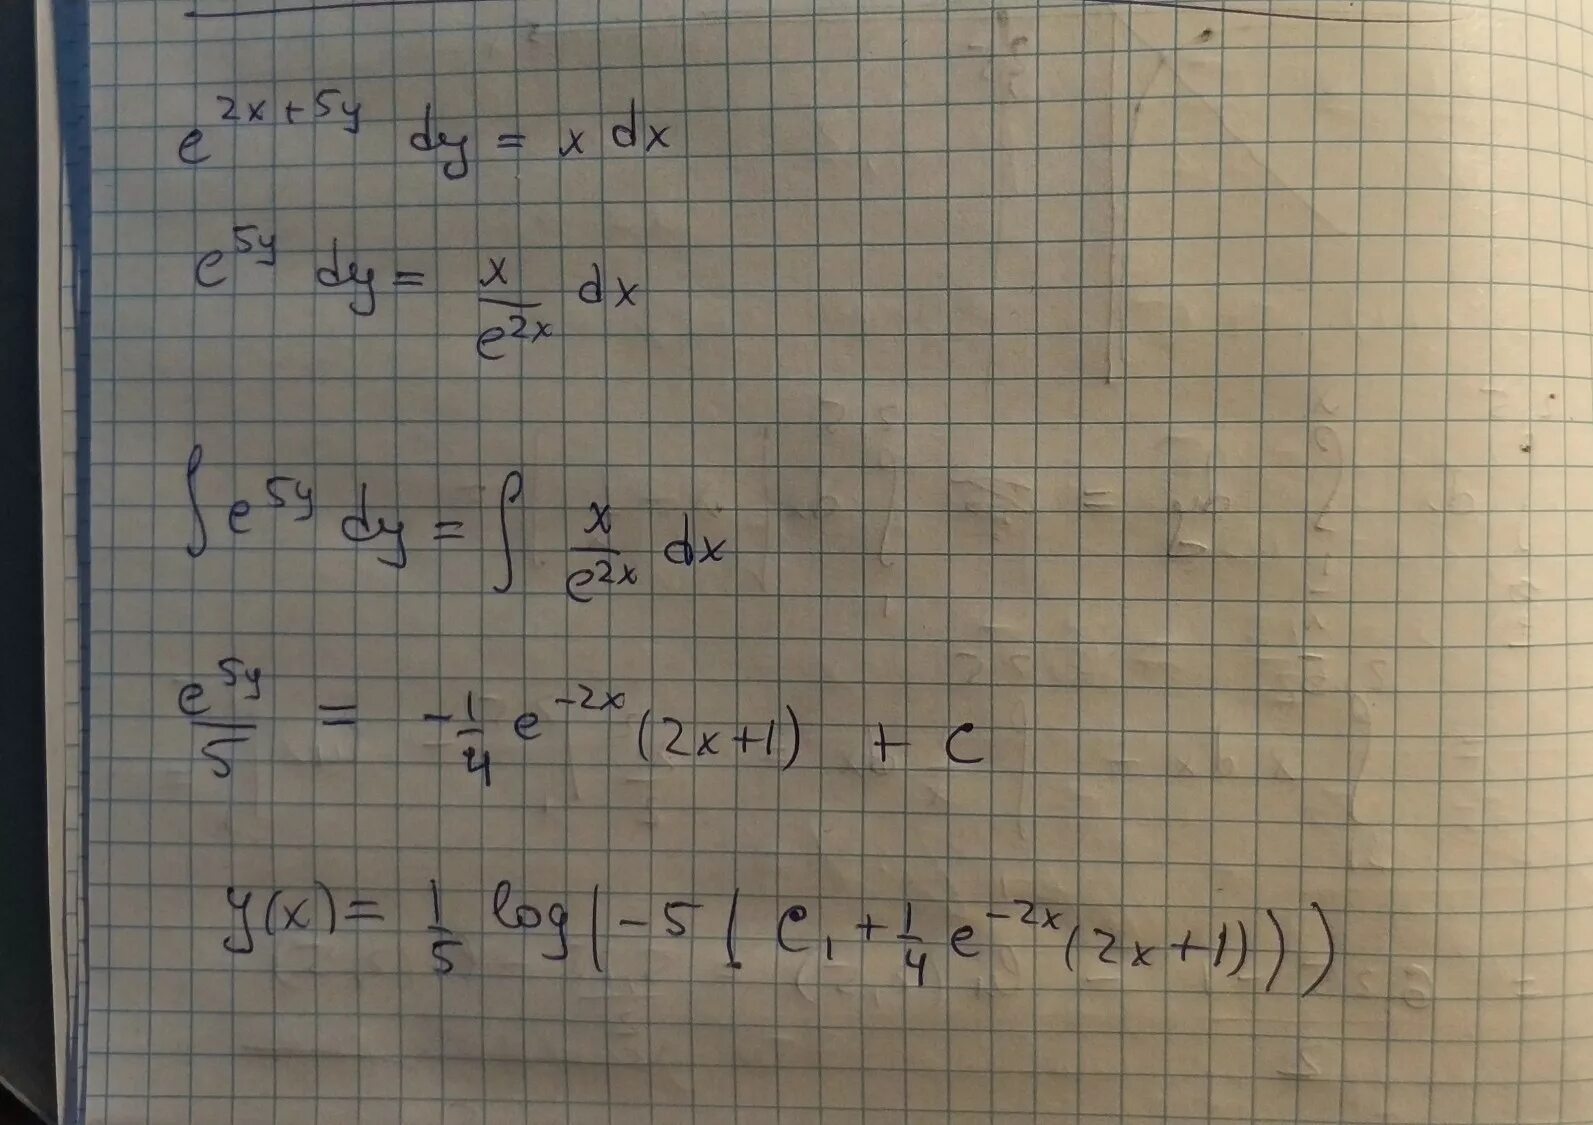 e^{2x+5y} dy = x dx
e^{5y} dy = \frac{x}{e^{2x}} dx
∫ e^{5y} dy = ∫ \frac{x}{e^{2x}} dx
\frac{e^{5y}}{5} = -\frac{1}{4} e^{-2x} (2x+1) + c
y(x) = \frac{1}{5} log(-5(c_1 + \frac{1}{4} e^{-2x} (2x+1)))